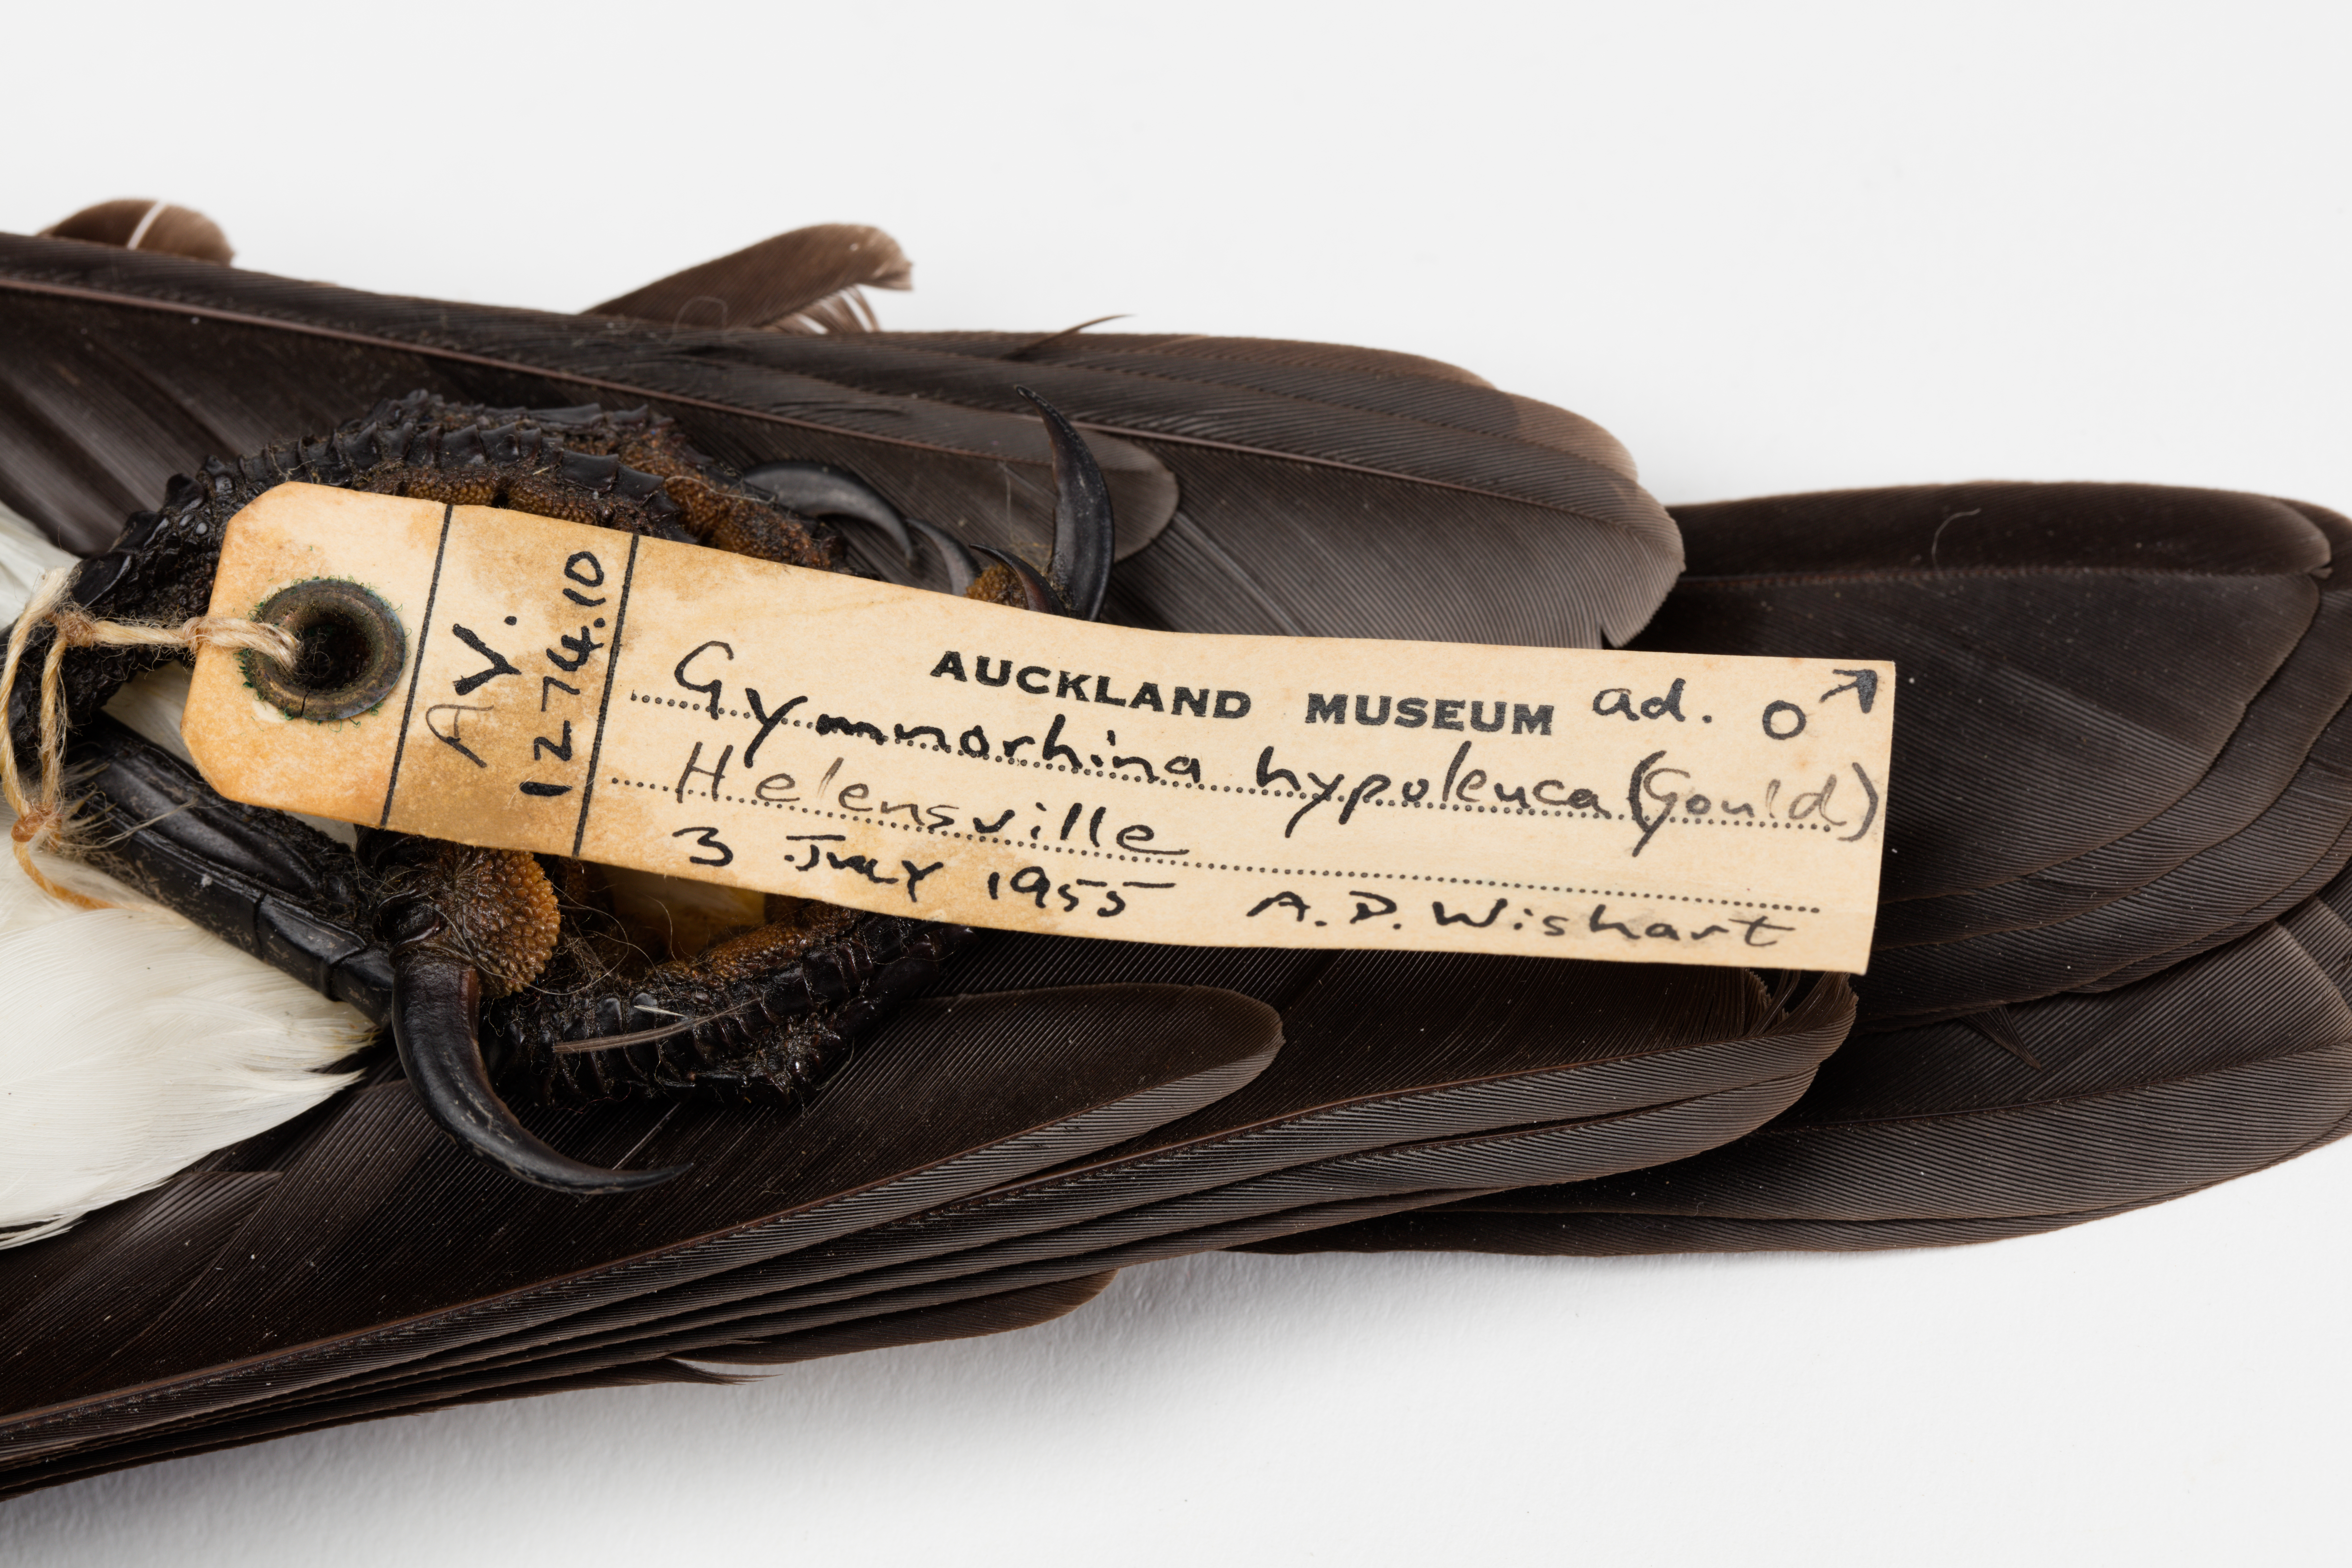 AV.
1274.10
AUCKLAND MUSEUM ad. ♂
Gymnorhina hypoleuca (Gould)
Helensville
3 July 1955 A.D. Wishart